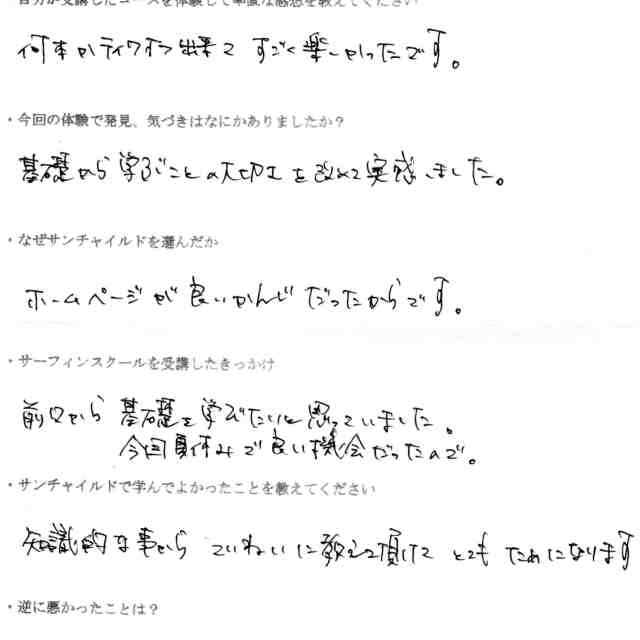 自分が受講したコースを体験して率直な感想を教えてください
何本かテイクオフ出来て すごく楽しかったです。
・今回の体験で発見、気づきはなにかありましたか?
基礎から学ぶことの大切さを改めて実感しました。
・なぜサンチャイルドを選んだか
ホームページが良いかんじだったからです。
・サーフィンスクールを受講したきっかけ
前々から 基礎を学びたいと思っていました。
今回夏休みで良い機会だったので。
・サンチャイルドで学んでよかったことを教えてください
知識的な事から ていねいに教えて頂けて とても ためになります
・逆に悪かったことは?